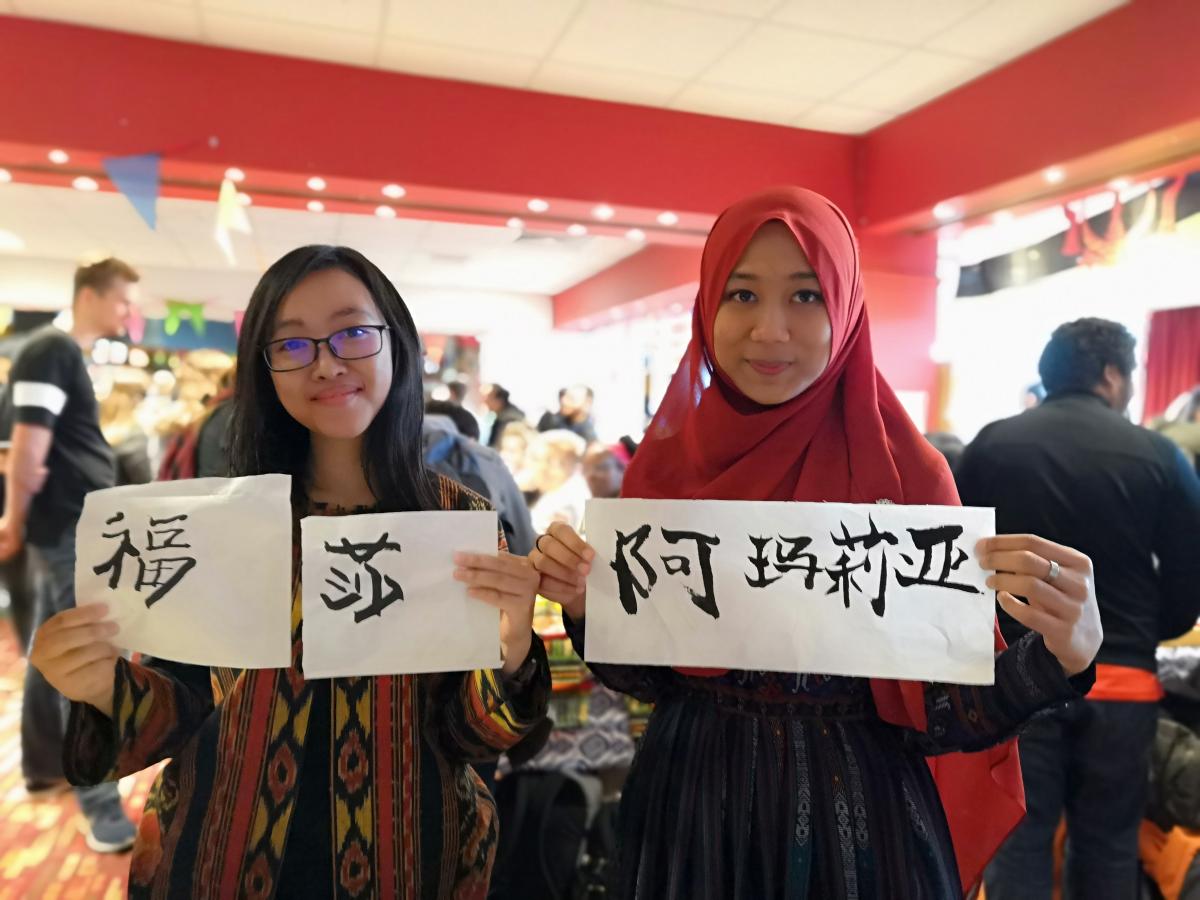 福
莎
阿玛莉亚